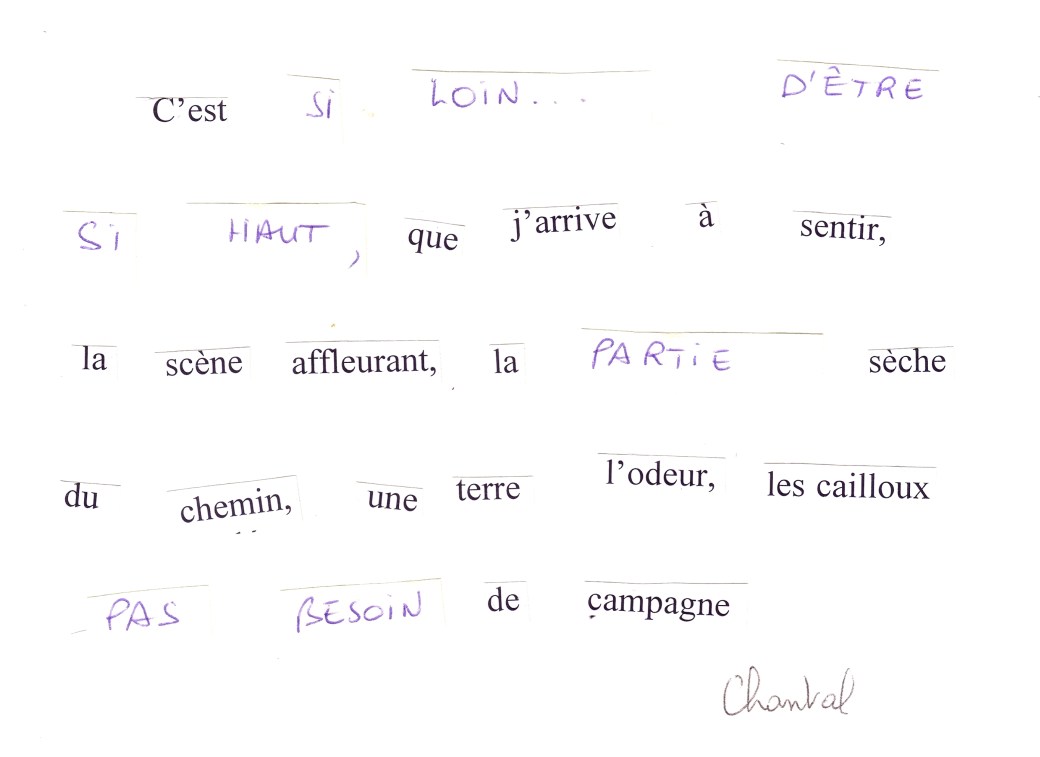 C'est Si LOiN... D'ÊTRE
Si HAUT, que j'arrive à sentir,
la scène affleurant, la PARTiE sèche
du chemin, une terre l'odeur, les cailloux
PAS BESOiN de campagne
Chantal